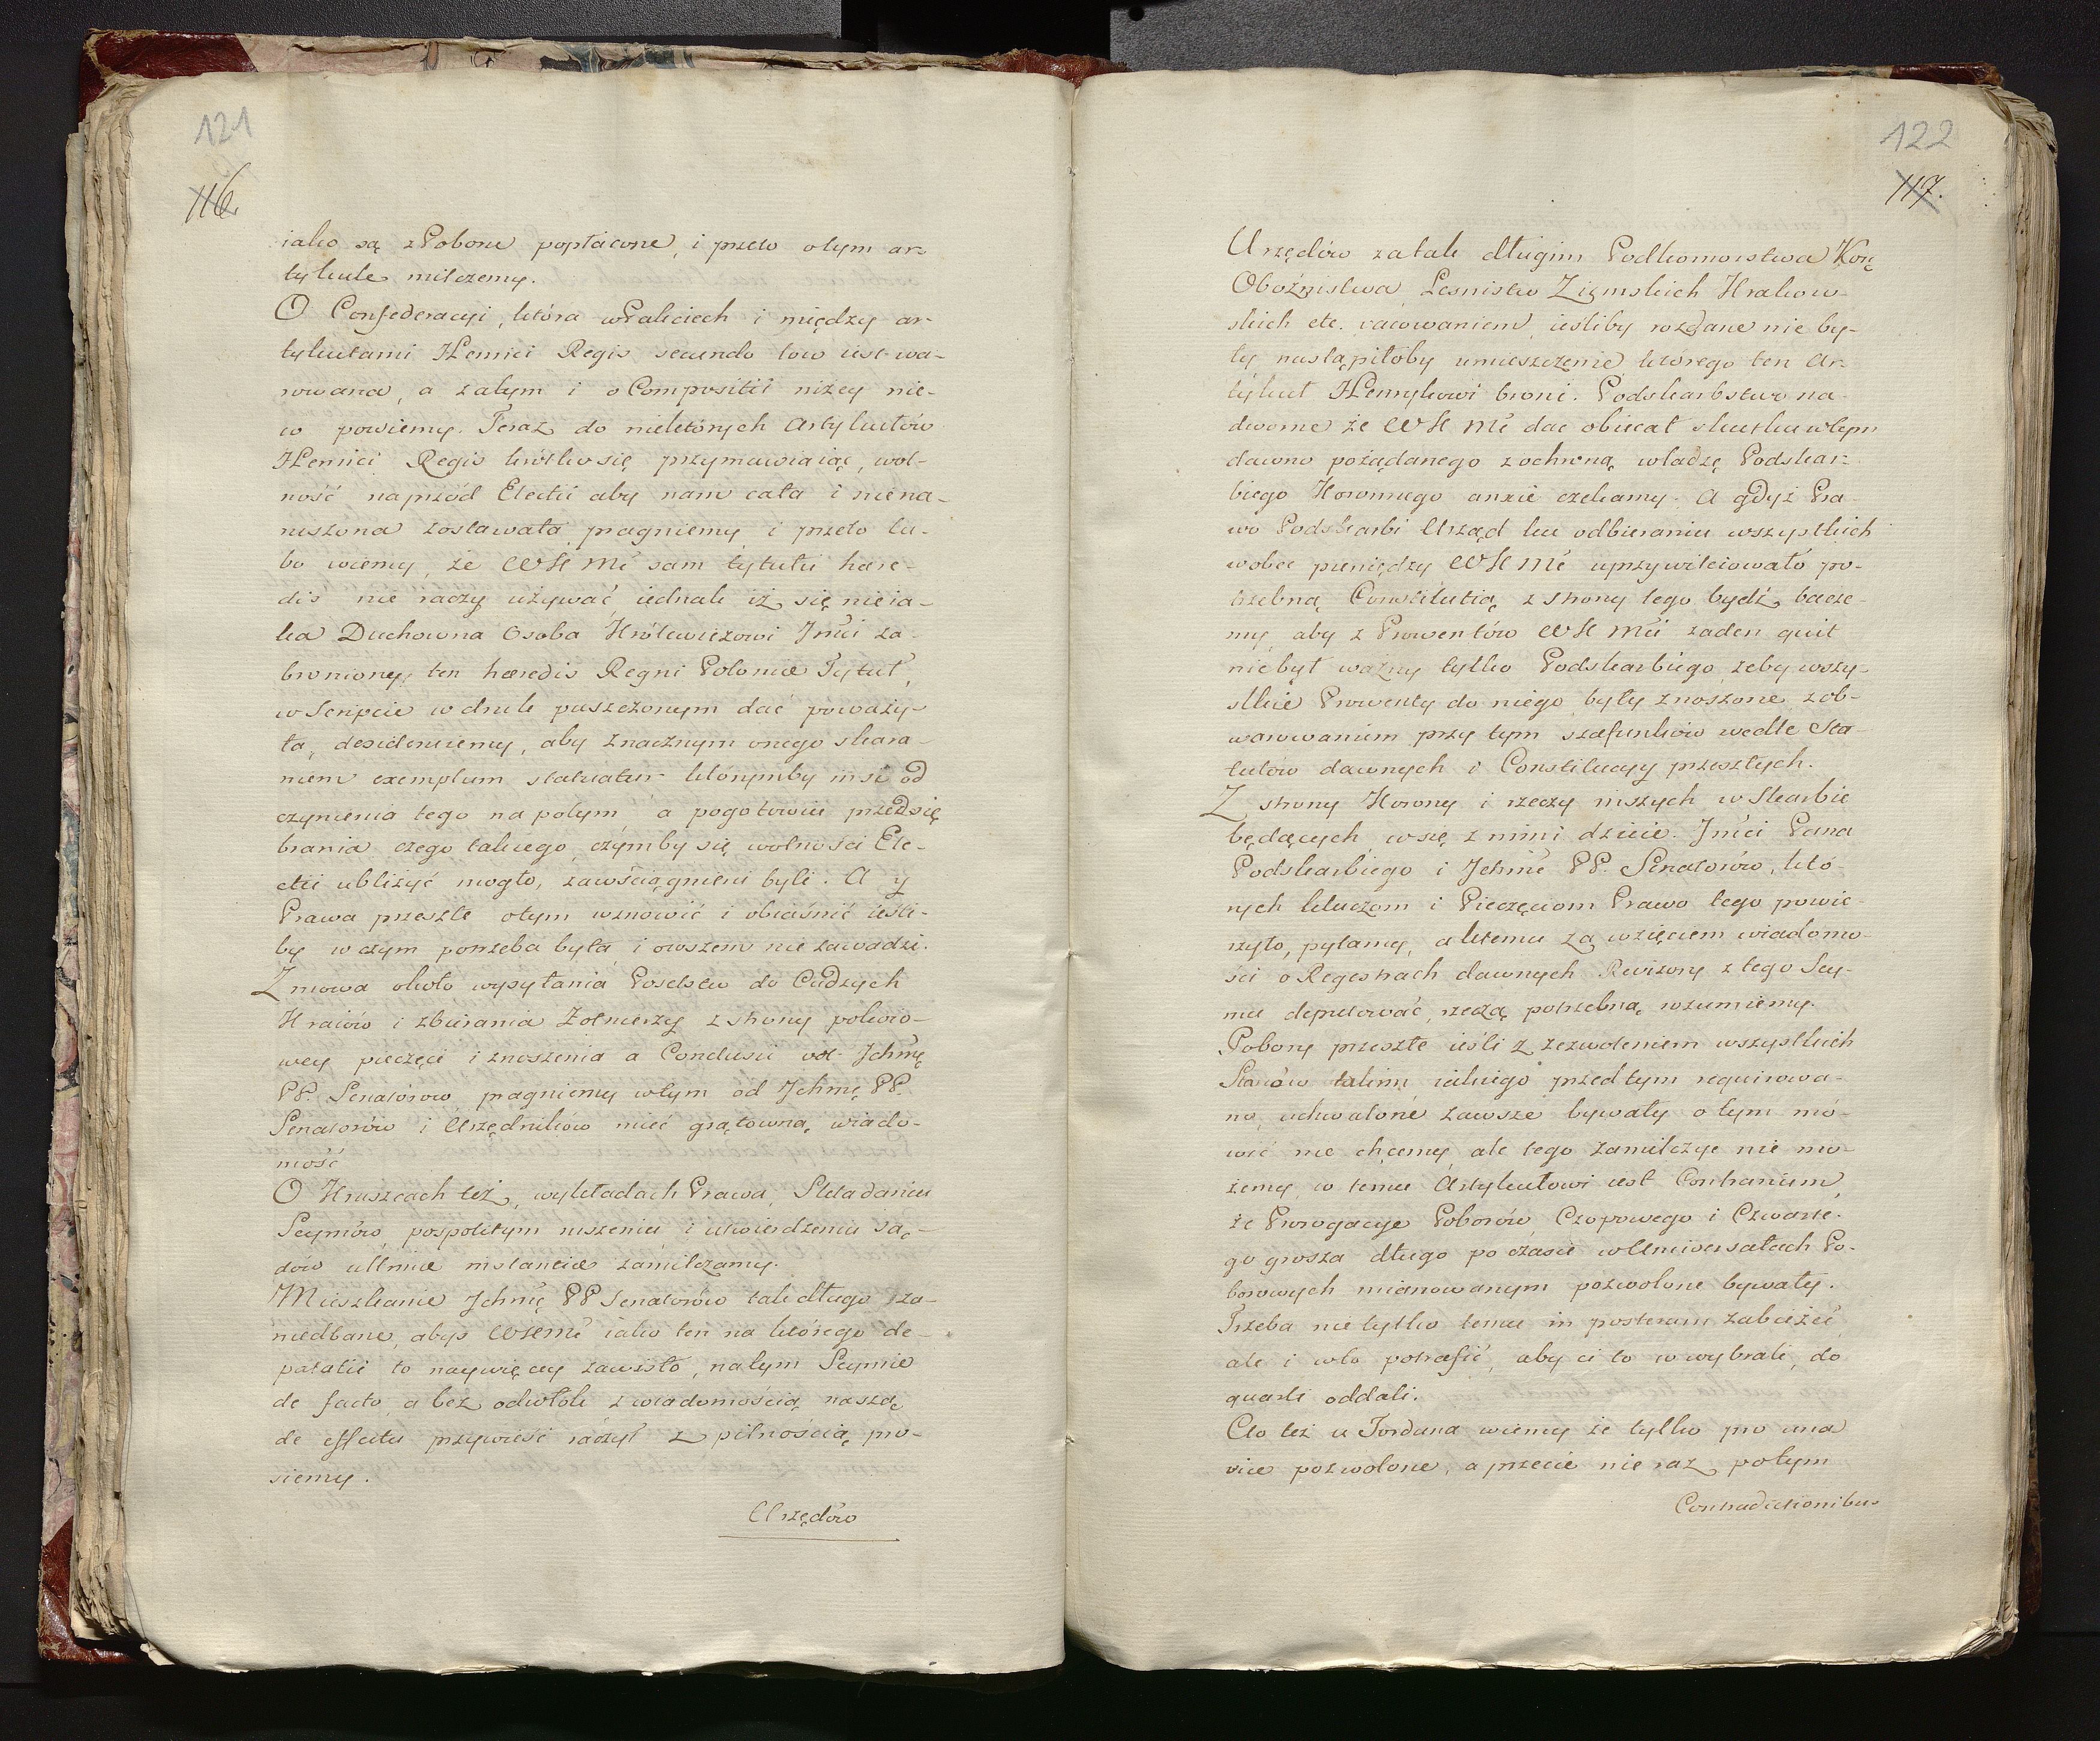 121
116.
iako są z Poboru popłacone, i przeto o tym ar-
tykule milczemy.
O Confederacyi, która w Paktciech i między ar-
tykułami Henrici Regis secundo loco iest wa-
rowana, a zatym i o Compositii niżey nie-
co powiemy. Teraz do niektórych Artykułów
Henrici Regis krótko się przymawiaiąc, wol-
ność naprzód Electii aby nam cała i niena-
ruszona zostawała pragniemy, i przeto lu-
bo wiemy, że WKMć sam tytułu hære-
dis nie raczy używać, iednak iż się nieia-
ka Duchowna Osoba Królewiczowi Jmći za-
broniony ten hæredis Regni Poloniæ Tytuł,
w Scripcie w druk puszczonym dać poważy-
ła, desideruiemy, aby znacznym onego skara-
niem exemplum statuatur którymby insi od
czynienia tego na potym a pogotowiu przedsię
brania czego takiego, czymby się wolności Ele-
ctii ubliżyć mogło, zawściągnieni byli. A y
Prawa przeszłe o tym wznowić i obiaśnić ieśli-
by w czym potrzeba była, i owszem nie zawadzi.
Zmowa około wysyłania Poselstw do Cudzych
Kraiów i zbierania Żołnierzy z strony pokoio-
wey pieczęci i znoszenia a Conclusii vot Jchmę
PP. Senatorow, pragniemy w tym od Jchmę PP.
Senatorów i Urzędników mieć grątowną wiado-
mość
O Kruszcach też, wykładach Prawa, Składaniu
Seymów, pospolitym ruszeniu i utwierdzeniu są-
dów ultimæ instantiæ zamilczamy.
Mieszkanie Jchmę PP Senatorów tak długo za-
niedbane, abyś WKMć iako ten na którego de-
putatii to naywięcey zawisło, na tym Seymie
de facto, a bez odwłok z wiadomością naszą
de effectu przywieść raczył z pilnością pro-
siemy.
Urzędów
122
117.
Urzędów za tak długim Podkomorstwa Korę
Oboźnistwa, Lesnistw Ziemskich Krakow-
skich etc. vacowaniem, ieśliby rozdane nie by-
ły, nastąpiłoby umieszczenie którego ten Ar-
tykuł Henrykowi broni. Podskarbstwo na-
dworne że WKMć dac obiecał skutku w tym
dawno pożądanego z ochroną władzę Podskar-
biego Koronnego anxie czekamy. A gdyż Pra-
wo Podskarbi Urząd ku odbieraniu wszystkich
wobec pieniędzy WKMć uprzywileiowało po-
trzebną Constitutią z strony tego bydź bacze-
my, aby z Prowentów WKMći żaden quit
nie był ważny tylko Podskarbiego, żeby wszy-
stkie Prowenty do niego były znoszone z ob-
warowaniem przy tym szafunków wedle Sta-
tutów dawnych i Constitucyy przeszłych.
Z strony Korony i rzeczy inszych w Skarbie
będących, co się z nimi dzieie. Jmći Pana
Podskarbiego i Jchmć PP. Senatorów, któ-
rych kluczom i Pieczęciom Prawo tego powie-
rzyło, pytamy, a ktemu za wzięciem wiadomo-
ści o Regestrach dawnych Rewizory z tego Sey-
mu deputować, rzeczą potrzebną rozumiemy.
Pobory przeszłe ieśli z zezwoleniem wszystkich
Stanów takim iakiego przedtym requirowa-
no, uchwalone zawsze bywały o tym mó-
wić nie chcemy, ale tego zamilczyć nie mo-
żemy, co temu Artykułowi iest Contrarium,
że Prorogacye Poborów, Czopowego i Czwarte-
go grosza długo po czasie w Uniwersałach Po-
borowych mianowanym pozwolone bywały.
Trzeba nie tylko temu in posterum zabieżeć
ale i w to potrafić, aby ci to co wybrali, do
quarti oddali.
Cło też u Jordana wiemy że tylko pro una
vice pozwolone, a przecie nie raz potym
Contradictionibus